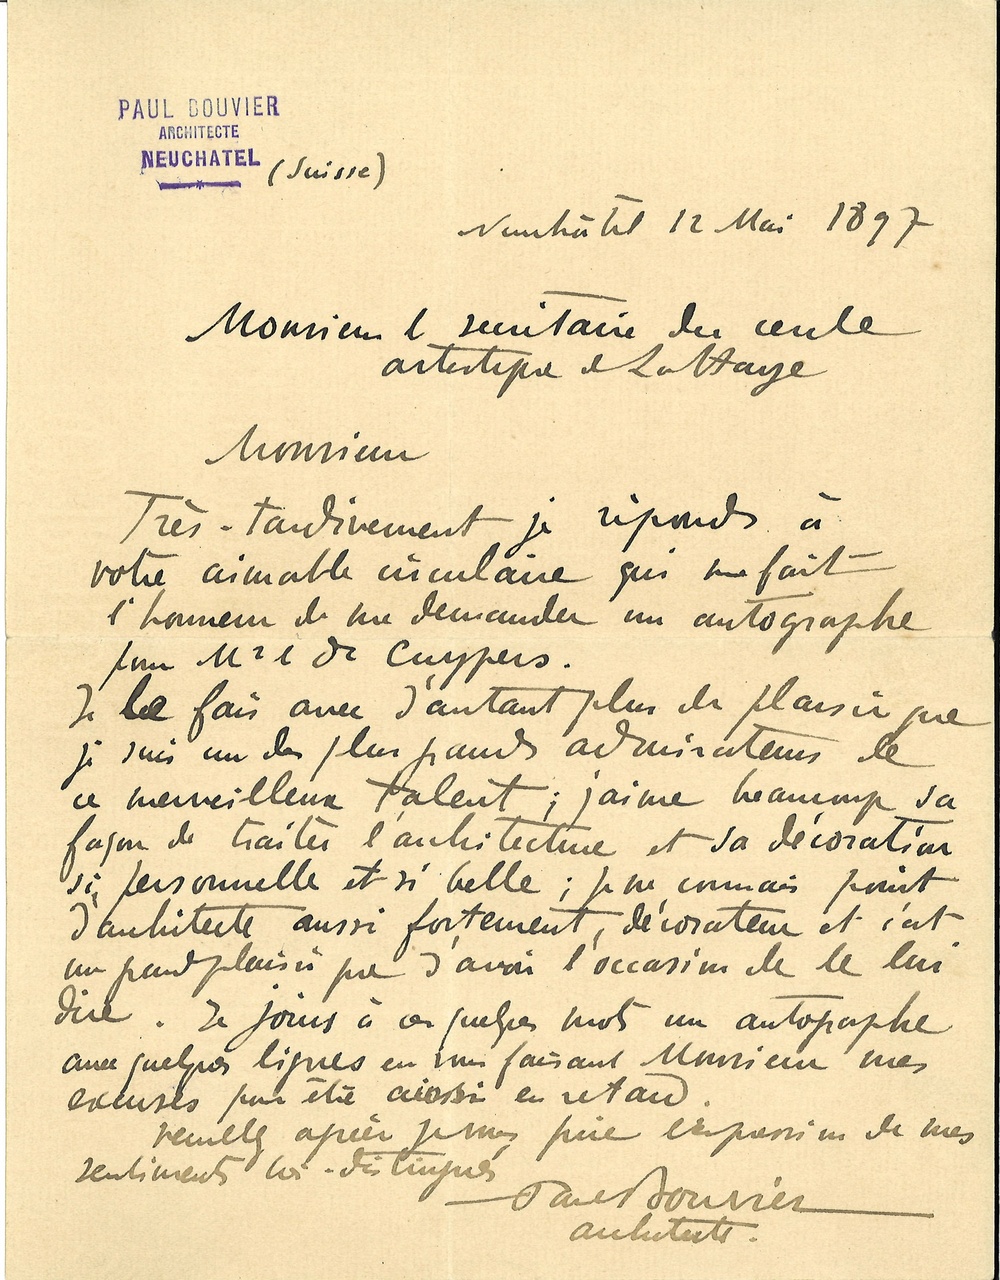 PAUL BOUVIER
ARCHITECTE
NEUCHATEL (Suisse)
Neuchâtel 12 Mai 1897
Monsieur le secrétaire du cercle
artistique de La Haye
Monsieur
Très-tardivement je réponds à
votre aimable circulaire qui me fait
l'honneur de me demander un autographe
pour Mr le Dr Cuypers.
Je le fais avec d'autant plus de plaisir que
je suis un des plus grands admirateurs de
ce merveilleux talent ; j'aime beaucoup sa
façon de traiter l'architecture et sa décoration
si personnelle et si belle ; je ne connais point
d'architecte aussi fortement décorateur et c'est
un grand plaisir que d'avoir l'occasion de le lui
dire. Je joins à ces quelques mots un autographe
avec quelques lignes en vous faisant Monsieur mes
excuses pour être aussi en retard.
Veuillez agréer je vous prie l'expression de mes
sentiments très-distingués
Paul Bouvier
architecte.